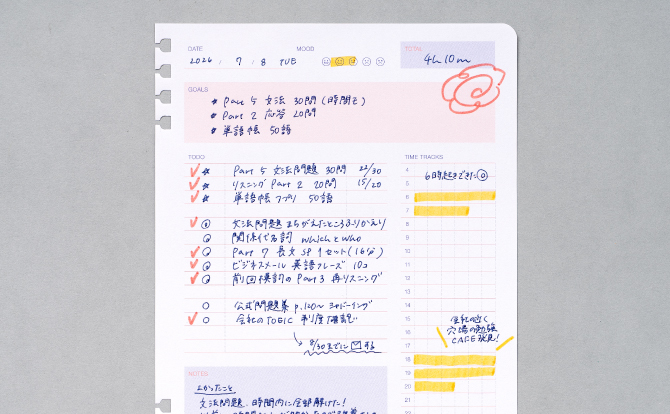 DATE
MOOD
TOTAL
2026 / 7 / 8 TUE
4h 10m
GOALS
* Part 5 文法 30問 (時間も)
* Part 2 応答 20問
* 単語帳 50語
TODO
TIME TRACKS
Part 5 文法問題 30問 22/30
リスニング Part 2 20問 15/20
単語帳アプリ 50語
文法問題 まちがえたところふりかえり
関係代名詞 whichとwho
Part 7 長文 SP 1セット(16分)
ビジネスメール 英語フレーズ 10コ
前回模試のPart 3 再リスニング
公式問題集 p.120〜 シャドーイング
会社のTOEIC 制度確認
8/30までに する
4
6時起きできた
5
6
7
8
9
10
11
12
13
14
15
16
17
18
19
20
会社の近く
穴場の勉強
CAFE 発見!
NOTES
よかったこと
文法問題、時間内に全部解けた!